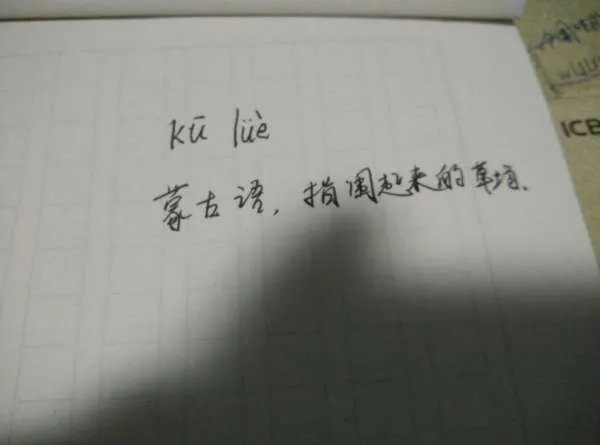 kū lüè
蒙古语，指围起来的草场.
ICB